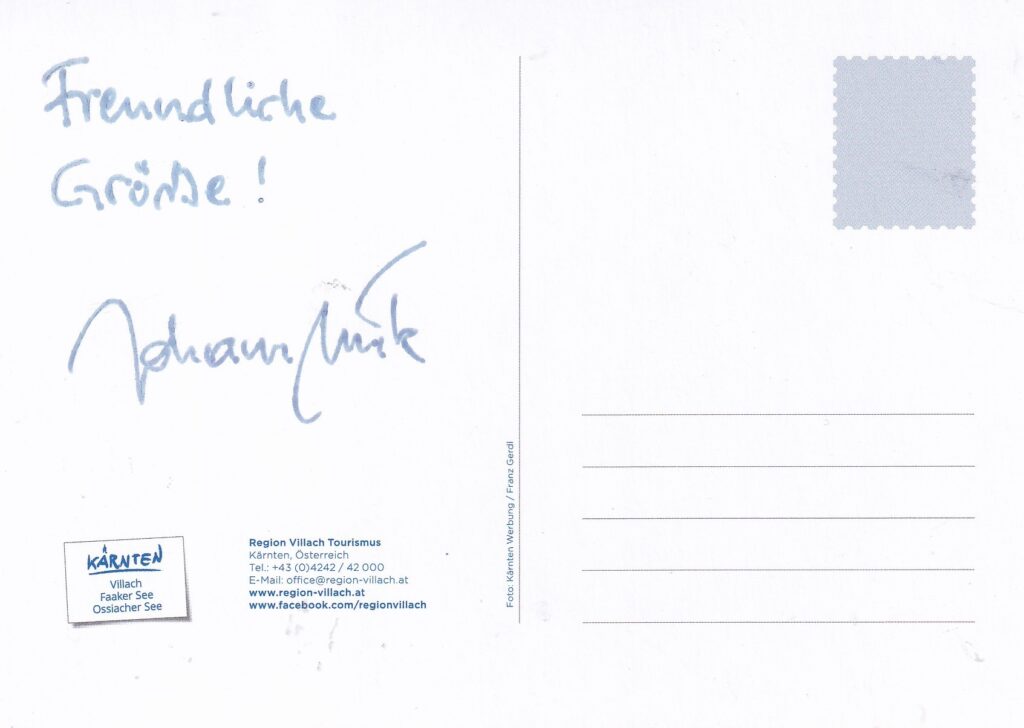 Freundliche
Größe!
Johann
KÄRNTEN
Villach
Faaker See
Ossiacher See
Region Villach Tourismus
Kärnten, Österreich
Tel.: +43 (0)4242 / 42 000
E-Mail: office@region-villach.at
www.region-villach.at
www.facebook.com/regionvillach
Foto: Kärnten Werbung / Franz Gerdl